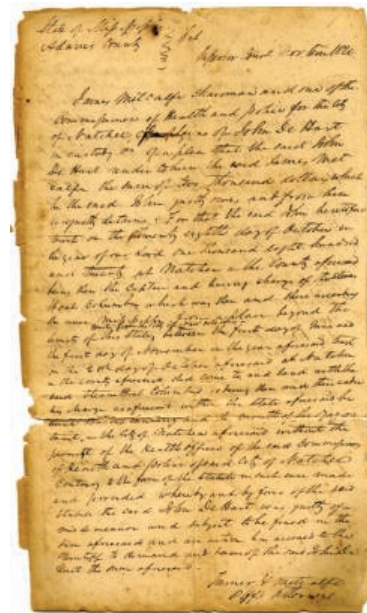 State of Mississippi
Adams County
Sct
Superior Court Nov Term 1820
James Metcalfe Chairman and one of the
Commissioners of Health and police for the City
of Natchez complains of John De Hart
in custody &c of a plea that the said John
De Hart render to him the said James Met
calfe the sum of two thousand dollars which
he the said John justly owes and from him
unjustly detains: For that the said John heretofore
on the twenty eighth day of October in
the year of our Lord one thousand eight hundred
and twenty at Natchez in the County aforesaid
being then the Captain and having charge of the Steam
Boat Columbus which was then and there
from a place beyond the
limits of this State, between the first day of June and
the first day of November in the year aforesaid
on the 28th day of October aforesaid at Natchez
in the county aforesaid did come to and land with the
said steamboat Columbus
his charge as aforesaid within the State aforesaid
in the City of Natchez aforesaid without the
permit of the Health officer of the said Commissioners
of Health and police of said City of Natchez
Contrary to the form of the statute in such case made
and provided whereby and by force of the said
statute the said John De Hart was guilty of a
misdemeanor and subject to be fined in the
sum aforesaid and an action has accrued to the
Plaintiff to demand and have of the said John De
Hart the sum aforesaid.
James Metcalfe